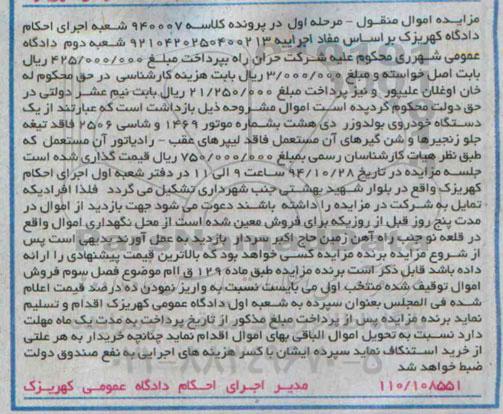 مزایده اموال منقول - مرحله اول در پرونده کلاسه ۹۴۰۰۰۷ شعبه اجرای احکام
دادگاه کهریزک بر اساس مفاد اجراییه ۹۲۱۰۴۲۰۲۵۰۴۰۰۲۱۳ شعبه دوم دادگاه
عمومی شهرری محکوم علیه شرکت حزان راه بپرداخت مبلغ ۴۲۵/۰۰۰/۰۰۰ ریال
بابت اصل خواسته و مبلغ ۳/۰۰۰/۰۰۰ ریال بابت هزینه کارشناسی در حق محکوم له
خان اوغلان علیپور و نیز پرداخت مبلغ ۲۱/۲۵۰/۰۰۰ ریال بابت نیم عشر دولتی در
حق دولت محکوم گردیده است اموال مشروحه ذیل بازداشت است که عبارتند از یک
دستگاه خودروی بولدوزر دی هشت بشماره موتور ۱۴۶۹ و شاسی ۲۵۰۶ فاقد تیغه
جلو زنجیرها و شن گیرهای آن مستعمل فاقد لیپرهای عقب - رادیاتور آن مستعمل که
طبق نظر هیات کارشناسان رسمی بمبلغ ۷۵۰/۰۰۰/۰۰۰ ریال قیمت گذاری شده است
جلسه مزایده در تاریخ ۹۴/۱۰/۲۸ ساعت ۹ الی ۱۱ در دفتر شعبه اول اجرای احکام
کهریزک واقع در بلوار شهید بهشتی جنب شهرداری تشکیل می گردد فلذا افرادیکه
تمایل به شرکت در مزایده را داشته باشند دعوت می شود جهت بازدید از اموال در
مدت پنج روز قبل از روزیکه برای فروش معین شده است از محل نگهداری اموال واقع
در قلعه نو جنب راه آهن زمین حاج اکبر سردار بازدید به عمل آورند بدیهی است پس
از شروع مزایده برنده مزایده کسی خواهد بود که بالاترین قیمت پیشنهادی را ارائه
داده باشد قابل ذکر است برنده مزایده طبق ماده ۱۲۹ ق اام موضوع فصل سوم فروش
اموال توقیف شده منتخب اول می بایست نسبت به واریز نمودن ده درصد قیمت اعلام
شده فی المجلس بعنوان سپرده به شعبه اول دادگاه عمومی کهریزک اقدام و تسلیم
نماید برنده مزایده پس از پرداخت مبلغ مذکور از تاریخ پرداخت به مدت یک ماه مهلت
دارد نسبت به تحویل اموال الباقی بهای اموال اقدام نماید چنانچه خریدار به هر علتی
از خرید استنکاف نماید سپرده ایشان با کسر هزینه های اجرایی به نفع صندوق دولت
ضبط خواهد شد
۱۱۰/۱۰۸۵۵۱ مدیر اجرای احکام دادگاه عمومی کهریزک